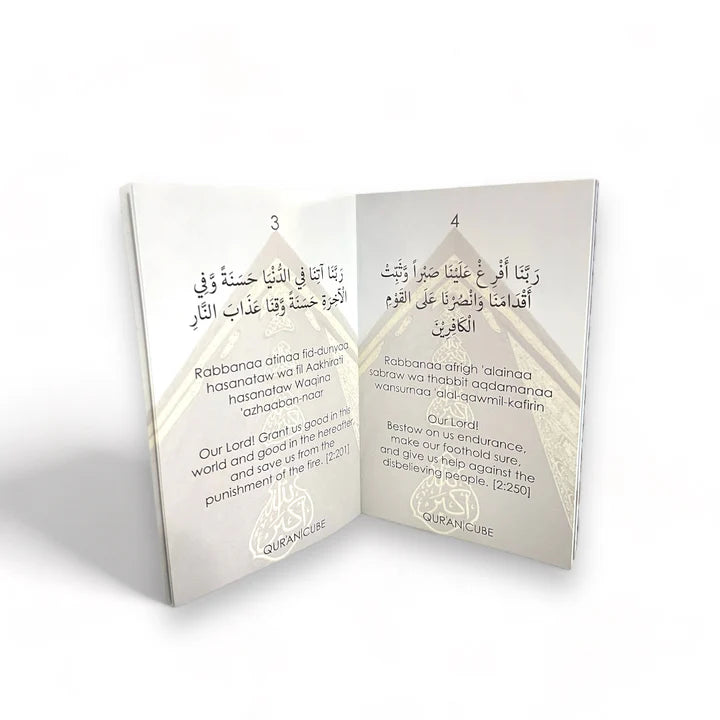 3
رَبَّنَا آتِنَا فِي الدُّنْيَا حَسَنَةً وَّفِي
الْآخِرَةِ حَسَنَةً وَّقِنَا عَذَابَ النَّارِ
Rabbanaa atinaa fid-dunyaa
hasanataw wa fil Aakhirati
hasanataw Waqina
'azhaaban-naar
Our Lord! Grant us good in this
world and good in the hereafter,
and save us from the
punishment of the fire. [2:201]
QUR'AN|CUBE
4
رَبَّنَا أَفْرِ غْ عَلَيْنَا صَبْراً وَّثَبِّتْ
أَقْدَامَنَا وَانْصُرْنَا عَلَى القَوْمِ
الْكَافِرِيْنَ
Rabbanaa afrigh 'alainaa
sabraw wa thabbit aqdamanaa
wansurnaa 'alal-qawmil-kafirin
Our Lord!
Bestow on us endurance,
make our foothold sure,
and give us help against the
disbelieving people. [2:250]
QUR'AN|CUBE